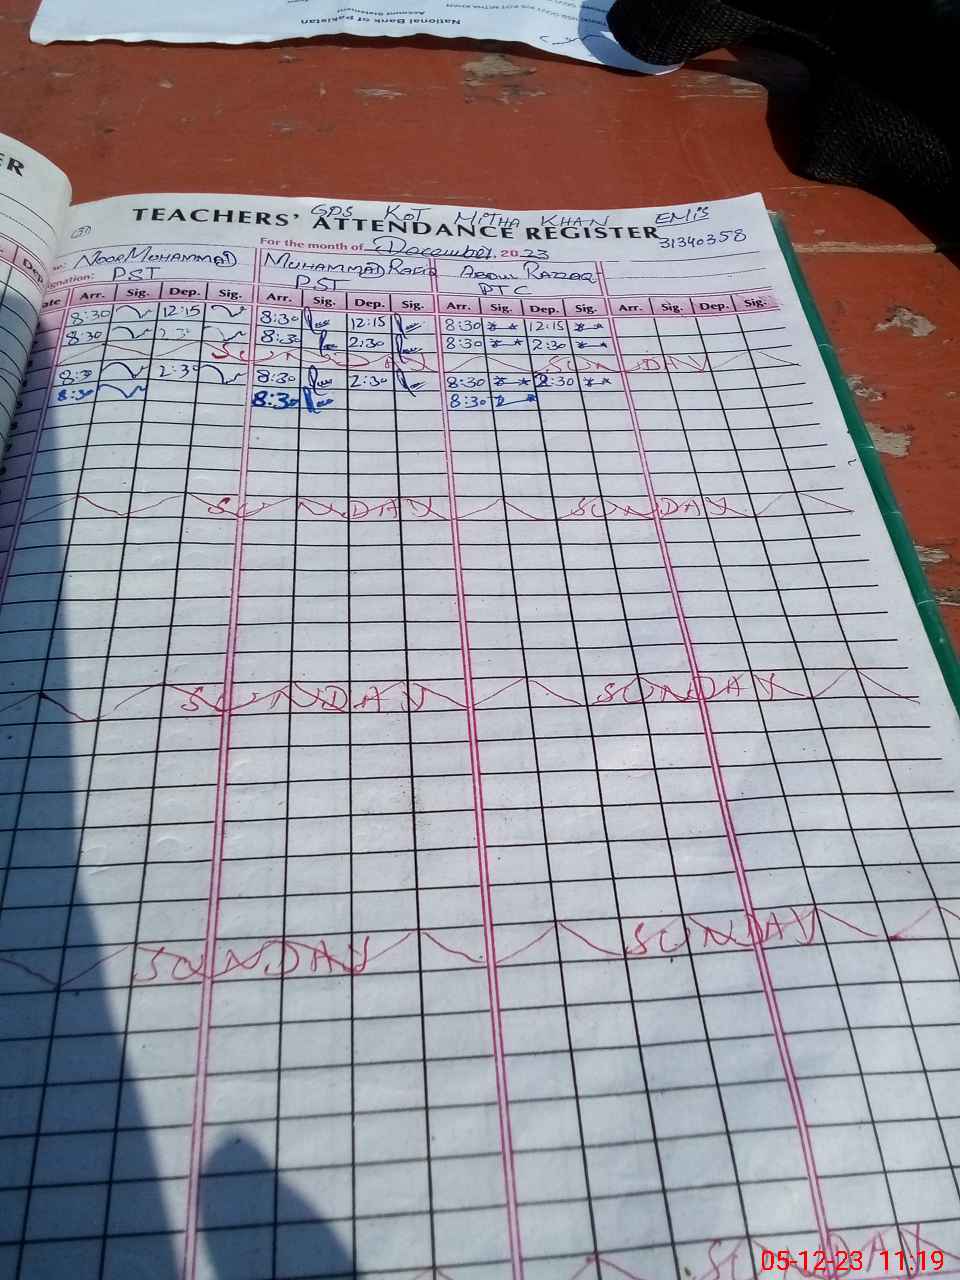 National Bank of Pakistan
Account Statement
ER
GPS KOT MITHA KHAN EMIS
TEACHERS' ATTENDANCE REGISTER
31340358
For the month of December 2023
Noor Muhammad Muhammad Rafiq Abdul Razaq
PST PST PTC
Arr. Sig. Dep. Sig. Arr. Sig. Dep. Sig. Arr. Sig. Dep. Sig. Arr. Sig. Dep. Sig.
8:30 12:15 8:30 12:15 8:30 12:15
8:30 2:30 8:30 2:30 8:30 2:30
SUNDAY SUNDAY
8:30 2:30 8:30 2:30 8:30 2:30
8:30 8:30 8:30
SUNDAY SUNDAY
SUNDAY SUNDAY
SUNDAY SUNDAY
SUNDAY
05-12-23 11:19